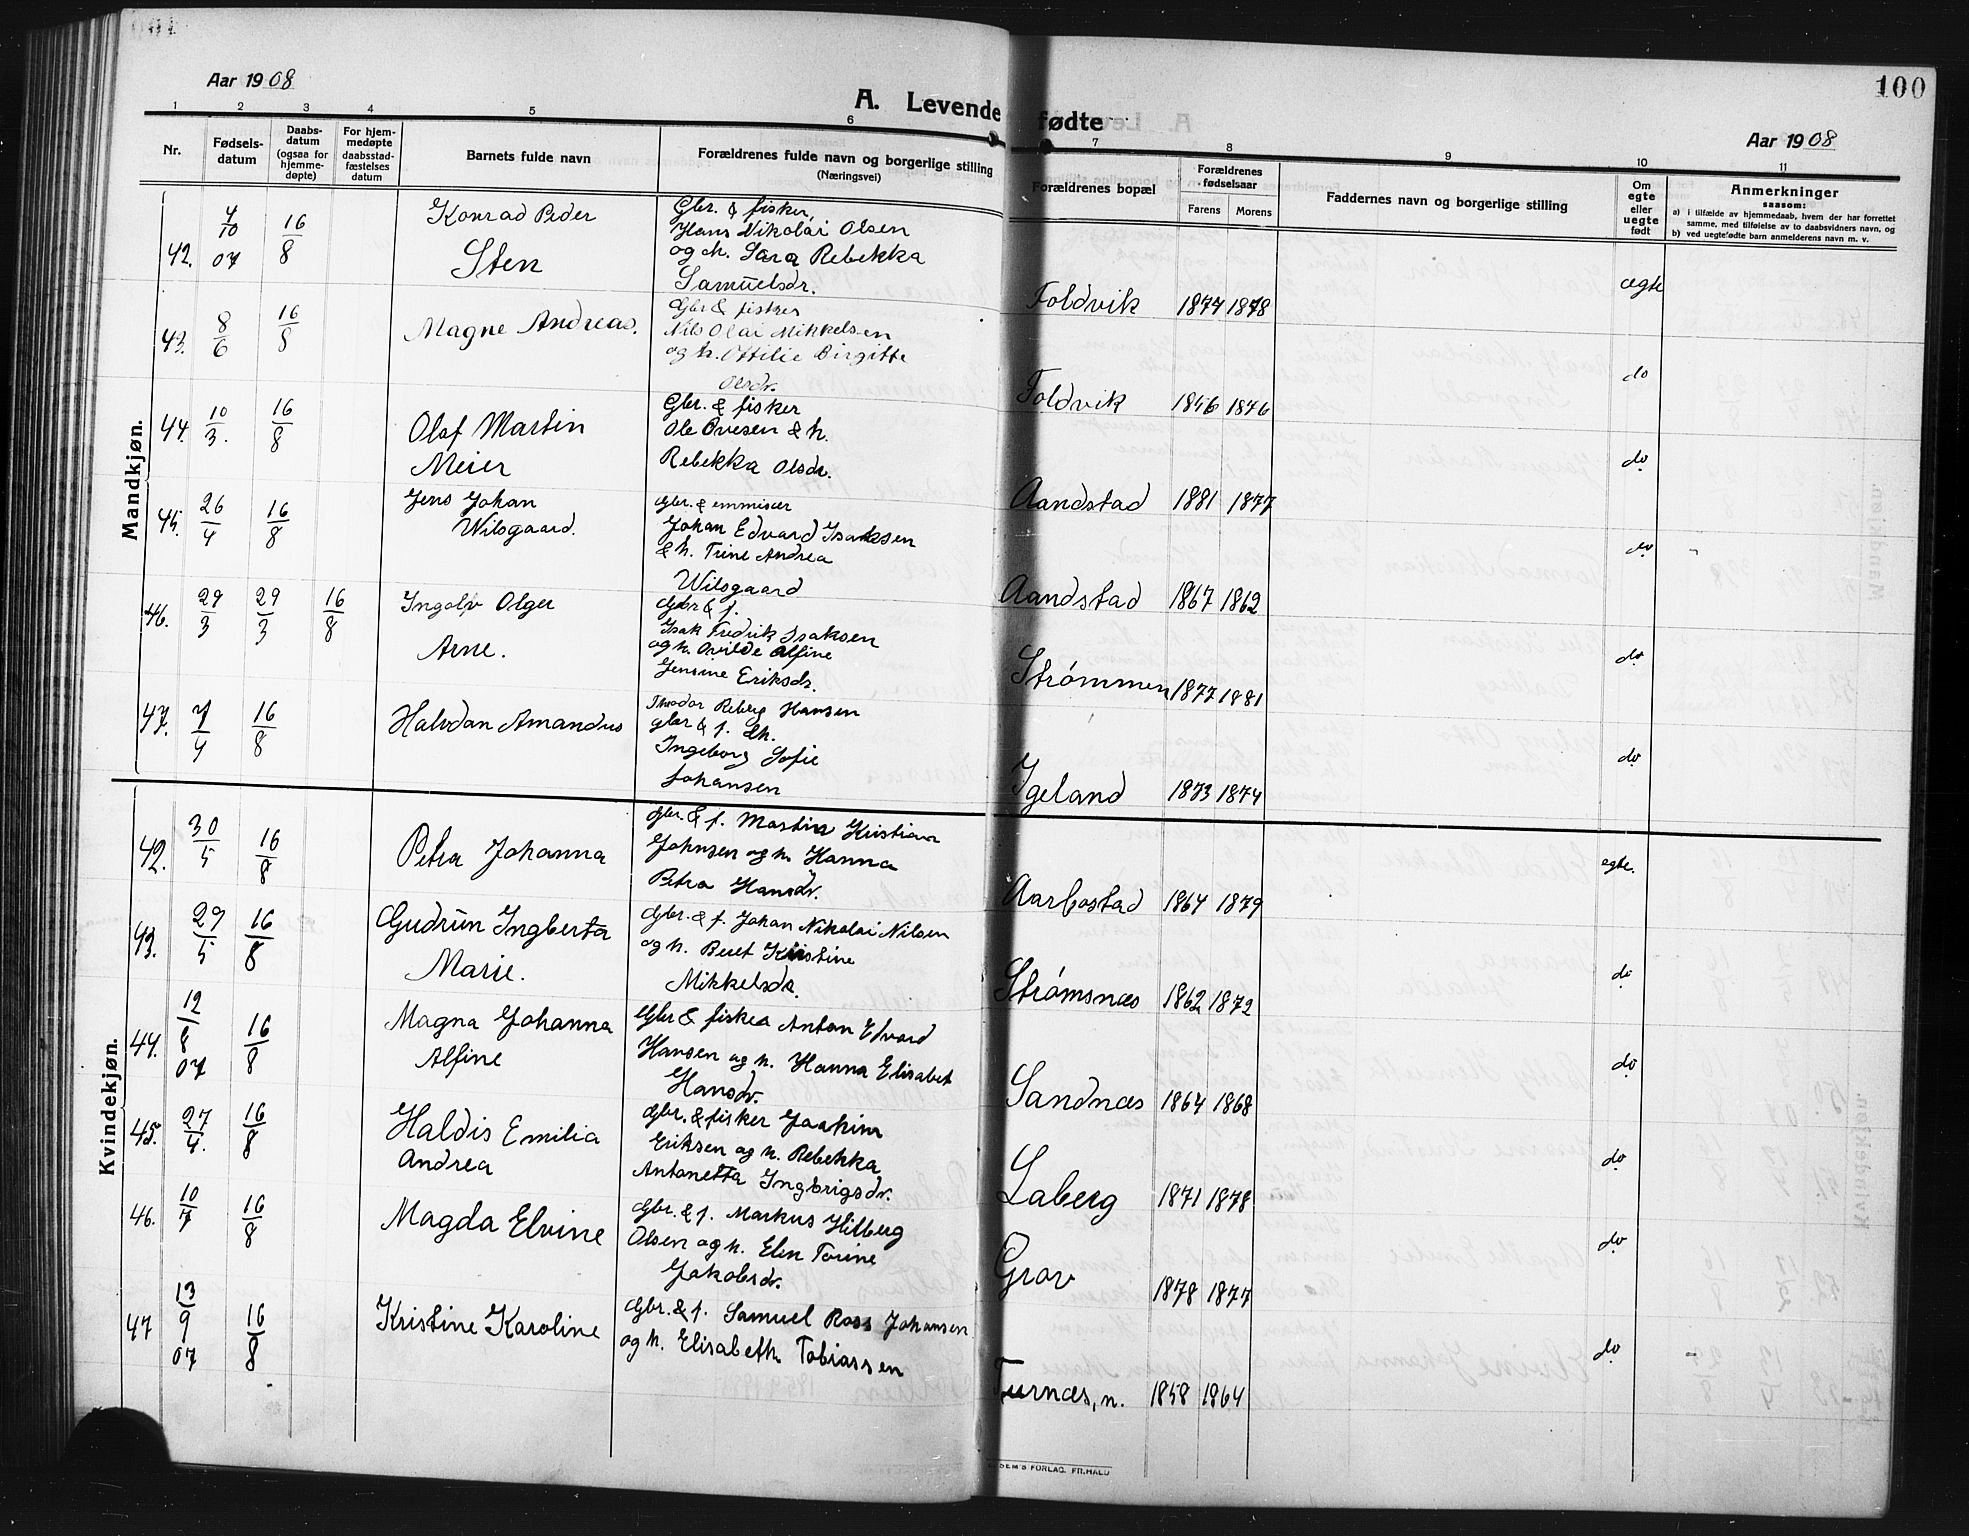 Aar 1908
A. Levende fødte
100
Aar 1908
1 2 3 4 5 6 7 8 9 10 11
Nr.
Fødsels-
datum
Daabs-
datum
(ogsaa for
hjemme-
døpte)
For hjem-
medøpte
daabsstad-
fæstelses
datum
Barnets fulde navn
Forældrenes fulde navn og borgerlige stilling
(Næringsvei)
Forældrenes bopæl
Forældrenes
fødselsaar
Farens Morens
Faddernes navn og borgerlige stilling
Om
egte
eller
uegte
født
Anmerkninger
saasom:
a) i tilfælde av hjemmedaab, hvem der har forrettet
samme, med tilføielse av to daabsvidners navn, og
b) ved uegtefødte barn anmelderens navn m. v.
Mandkjøn.
42. 7/10 07 16/8 Konrad Peder
Sten
Gbr. & fisker,
Hans Nikolai Olsen
og h. Sara Rebekka
Samuelsdr.
Foldvik 1877 1878 egte
43. 8/6 16/8 Magne Andreas.
Gbr & fisker
Nils Olai Mikkelsen
og h. Ottilie Birgitte
Olsdr.
Foldvik 1846 1846 do
44. 10/3. 16/8 Olaf Martin
Meier
Gbr. & fisker
Ole Ovesen & h.
Rebekka Olsdr.
Aandstad 1881 1877 do
45. 26/4 16/8 Jens Johan
Wilsgaard.
Gbr. & emmisær
Johan Edvard Isaksen
& h. Trine Andrea
Wilsgaard
Aandstad 1867 1862 do
46. 29/3 29/3 16/8 Ingolv Olger
Arne.
Gbr & f.
Isak Fredrik Isaksen
og h. Ovilde Alfine
Jensine Eriksdr.
Strømmen 1877 1881 do
47. 7/4 16/8 Halvdan Amandus
Theodor Reberg Hansen
gbr & f. & h.
Ingeborg Sofie
Johansen
Igeland 1873 1874 do
Kvindekjøn.
42. 30/5 16/8 Petra Johanna
Gbr. & f. Martin Kristian
Johnsen og h. Hanna
Petra Hansdr.
Aarbostad 1864 1879 egte.
43. 29/5 16/8 Gudrun Ingberta
Marie.
Gbr. & f. Johan Nikolai Nilsen
og h. Beret Kristine
Mikkelsdr.
Strømsnæs 1862 1872 do
44. 12/8 07 16/8 Magna Johanna
Alfine
Gbr & fisker Anton Edvard
Hansen og h. Hanna Elisabet
Hansdr.
Sandnæs 1864 1868 do
45. 27/4. 16/8 Haldis Emilia
Andrea
Gbr. & fisker Joakim
Eriksen og h. Rebekka
Antonetta Ingbrigsdr.
Laberg 1871 1878 do
46. 10/7 16/8 Magda Elvine
Gbr. & f. Markus Hilberg
Olsen og h. Elen Torine
Jakobsdr.
Grov 1878 1877 do
47 13/9 07 16/8 Kristine Karoline
Gbr. & f. Samuel Ross Johansen
og h. Elisabeth Tobiassen
Turnæs, n. 1858 1864 do
SEM'S FORLAG. FR. HALD